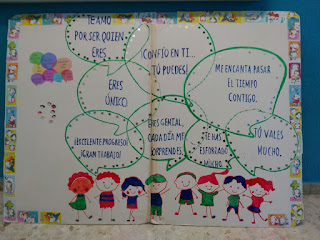 TE AMO
POR SER QUIEN
ERES
CONFÍO EN TI...
¡TÚ PUEDES!
ME ENCANTA PASAR
EL TIEMPO
CONTIGO.
ERES
ÚNICO
¡EXCELENTE PROGRESO!
¡GRAN TRABAJO!
ERES GENIAL,
CADA DÍA ME
SORPRENDES.
TE HAS
ESFORZADO
MUCHO.
TÚ VALES
MUCHO.